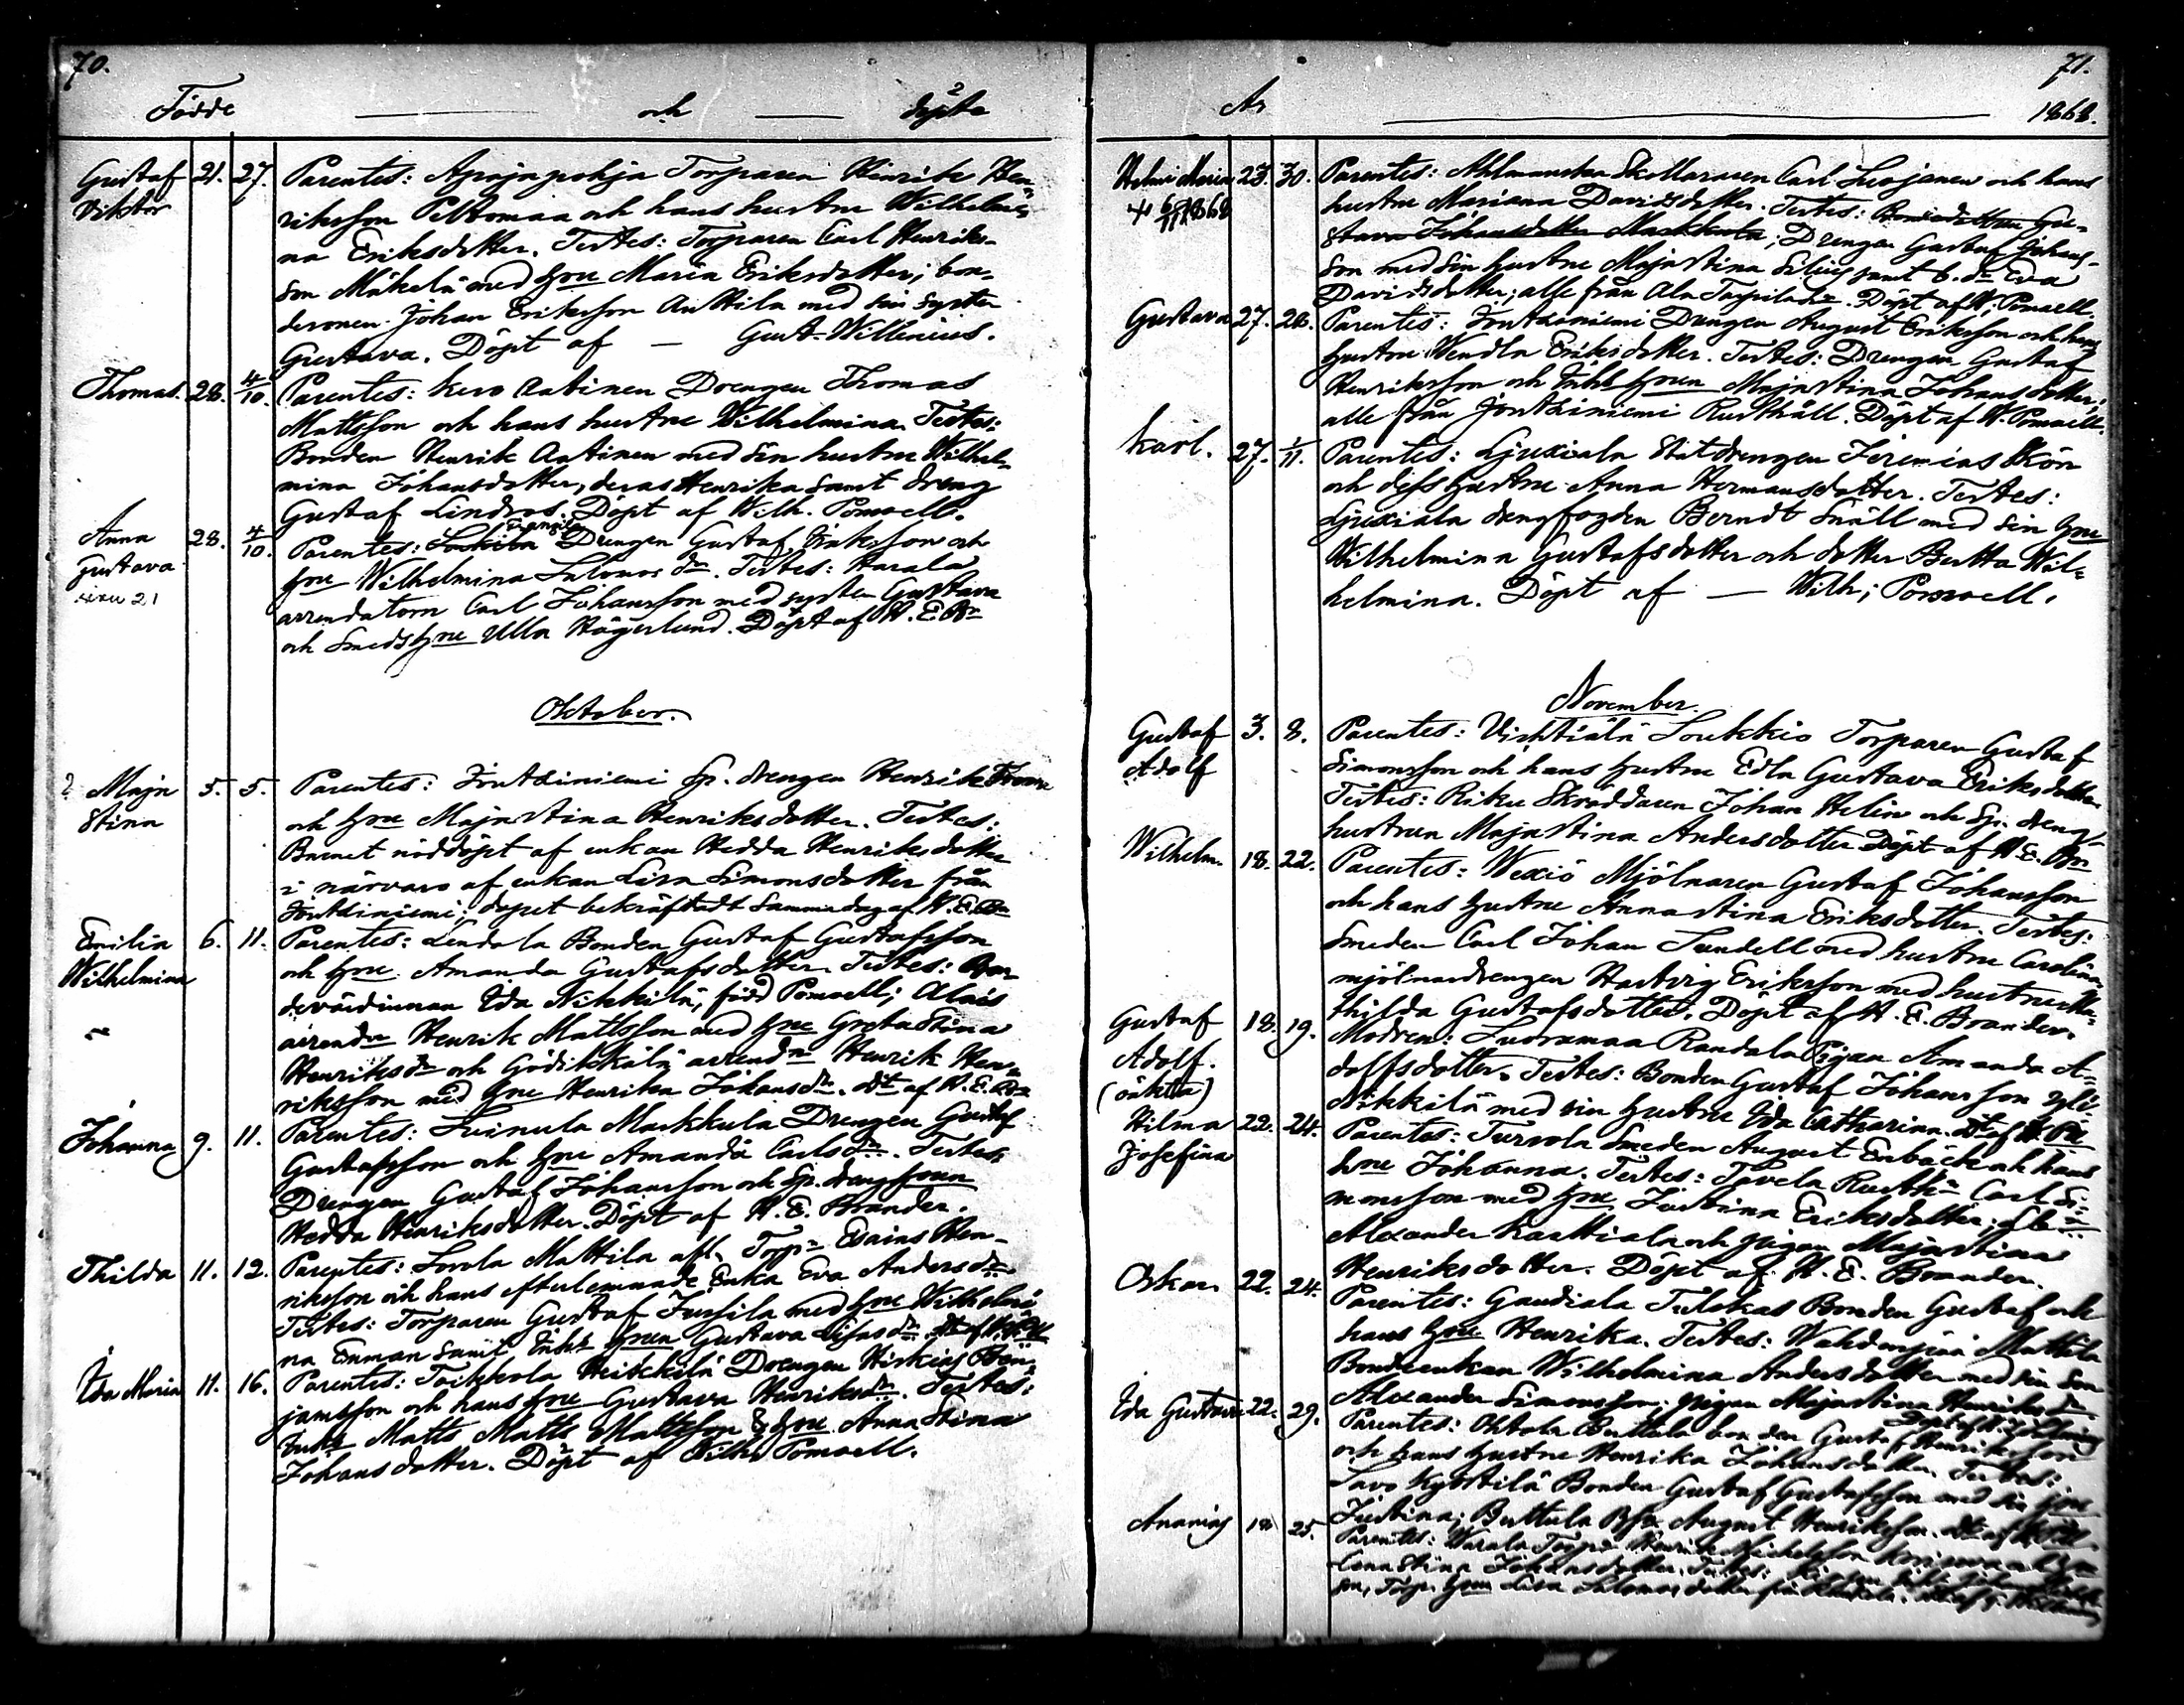 70.
Födde och döpte
Gustaf Viktor 21. 27. Parentes: Apajapohja Torparen Henrik Hen-
riksson Peltomaa och hans hustru Wilhelmi-
na Eriksdotter. Testes: Torparen Carl Henriks-
son Mäkelä med hru Maria Eriksdotter; bon-
desonen Johan Eriksson Anttila med sin syster
Gustava. Döpt af — Gust. Willenius.
Thomas. 28. 4/10. Parentes: Aatinen Drengen Thomas
Mattsson och hans hustru Wilhelmina. Testes:
Bonden Henrik Aatinen med sin hustru Wilhel-
mina Johansdotter, deras Henrika samt dreng
Gustaf Lindros. Döpt af Wilh. Pomoell.
Anna Gustava 28. 4/10. Parentes: Drengen Gustaf Eriksson och
hru Wilhelmina Salomos dr. Testes: Harala
arrendatorn Carl Johansson med syster Gustava
och Smeds hru Ulla Högerlund. Döpt af H. E. Br
Oktober.
? Maja Stina 5. 5. Parentes: Jontziniemi Sp. drengen Henrik
och hru Majastina Henriksdotter. Testes:
Barnet nöddöpt af enkan Hedda Henriksdotter
i närvaro af enkan Lisa Simonsdotter från
Jontziniemi; dopet bekräftadt samma dag af H. E. Br
Emilia Wilhelmina 6. 11. Parentes: Lendala Bonden Gustaf Gustafsson
och hru Amanda Gustafsdotter. Testes: Bon-
devärdinnan Ida Nikkilä, född Pomoell; Alais
arrendn Henrik Mattsson med hru Greta Stina
Henriksdr och Gödikkälä arrendn Henrik Hen-
riksson med hru Henrika Johansdr. Dt af H. E. Br
Johanna 9. 11. Parentes: Luinula Markkula Drengen Gustaf
Gustafsson och hru Amanda Carlsdr. Testes:
Drengen Gustaf Johansson och Sp. dreng hrun
Hedda Henriksdotter. Döpt af H. E. Brander.
Thilda 11. 12. Parentes: Mattila afl. Torpn Esaias Hen-
riksson och hans efterlemnade Enka Eva Andersdr
Testes: Torparen Gustaf Jussila med hru Wilhelmi-
na Enman samt Inhs hrun Gustava
Ida Maria 11. 16. Parentes: Heikkilä Drengen Hiskias Ben-
jamsson och hans hru Gustava Henriksdr. Testes:
Inhs Matts Matts Mattsson & hru Anna Stina
Johansdotter. Döpt af Wilh. Pomoell.
71.
År 1868.
Helmi Maria 23. 30. Parentes: Ahlmanska Skolläraren Carl Leojanen och hans
hustru Mariana Davidsdotter. Testes:
stava Johansdotter Markkula; Drengen Gustaf Johans-
son med sin hustru Majastina samt b. dr Eva
Davidsdotter; alle från Ala Döpt af W. Pomoell.
Gustava 27. 28. Parentes: Jontziniemi Drengen August Eriksson och hans
hustru Wendla Eriksdotter. Testes: Drengen Gustaf
Henriksson och Inhs hrun Majastina Johansdotter;
alle från Jontziniemi Rusthåll. Döpt af W. Pomoell.
Karl. 27. 1/11. Parentes: Ljuxiala Statdrengen Jeremias Skön
och dess hustru Anna Hermansdotter. Testes:
Ljuxiala drengfogden Berndt Snäll med sin hru
Wilhelmina Gustafsdotter och dotter Bertta Wil-
helmina. Döpt af — Wilh; Pomoell.
November.
Gustaf Adolf 3. 8. Parentes: Vishtiälä Loukkio Torparen Gustaf
Simonsson och hans hustru Edla Gustava Eriksdotter.
Testes: Riku Skräddaren Johan Helin och Sp. dreng-
hustrun Majastina Andersdotter Döpt af H. E. Br
Wilhelm. 18. 22. Parentes: Wexiö Mjölnaren Gustaf Johansson
och hans hustru Annastina Eriksdotter. Testes:
Smeden Carl Johan Sundell med hustru Carolina,
mjölnardrengen Hartvig Eriksson med hustru Ma-
thilda Gustafsdotter. Döpt af H. E. Brander.
Gustaf Adolf. (oäkta) 18. 19. Modren: Randala Pigan Amanda A-
dolfsdotter. Testes: Bonden Gustaf Johansson Yli-
Nikkilä med sin hustru Ida Catharina.
Hilma Josefina 22. 24. Parentes: Tursola Smeden August Enbäck och hans
hru Johanna. Testes: Tavela Rusth. Carl Si-
monsson med hru Justina Eriksdotter;
Alexander Karttiala och pigan Majastina
Henriksdotter. Döpt af H. E. Brander.
Oskar. 22. 24. Parentes: Gaudiala Tulokas Bonden Gustaf och
hans hru Henrika. Testes: Mattila
Bondeenkan Wilhelmina Andersdotter med sin son
Alexander Simonsson; pigan Majastina Henriksdr
Ida Gustava 22. 29. Parentes: Ohtola Buttula bonden Gustaf Henriksson
och hans hustru Henrika Johansdotter. Testes:
Savo Kyöstilä Bonden Gustaf Gustafsson med sin hru
Justina; Buttula August Henriksson.
Ananias 18 25. Parentes: Harala Torpn Henrik Michelsson
Lena Stina Johansdotter. Testes:
Torp. hrun Lisa Salomos dotter från